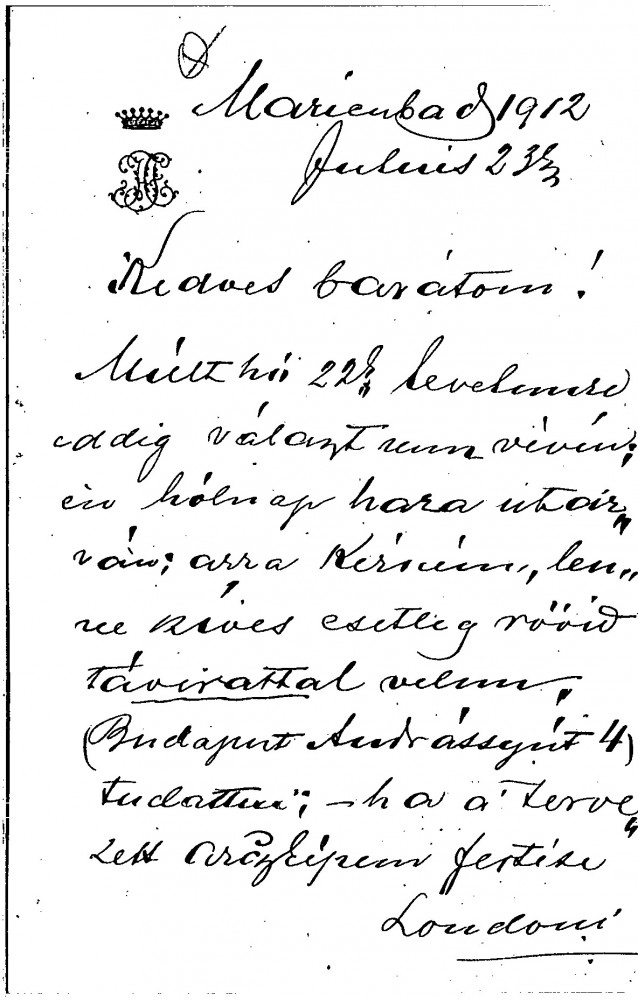 Marienbad 1912
Julius 23k
Kedves barátom!
Múlt hó 22k levelemre
eddig választ nem vévén;
én hólnap haza utaz„
ván; arra kérném, len„
ne kéves esetleg rövid
távirattal velem,
(Budapest Andrássyút 4)
tudattni; – ha a' terve„
zett arczképem festése
Londoni